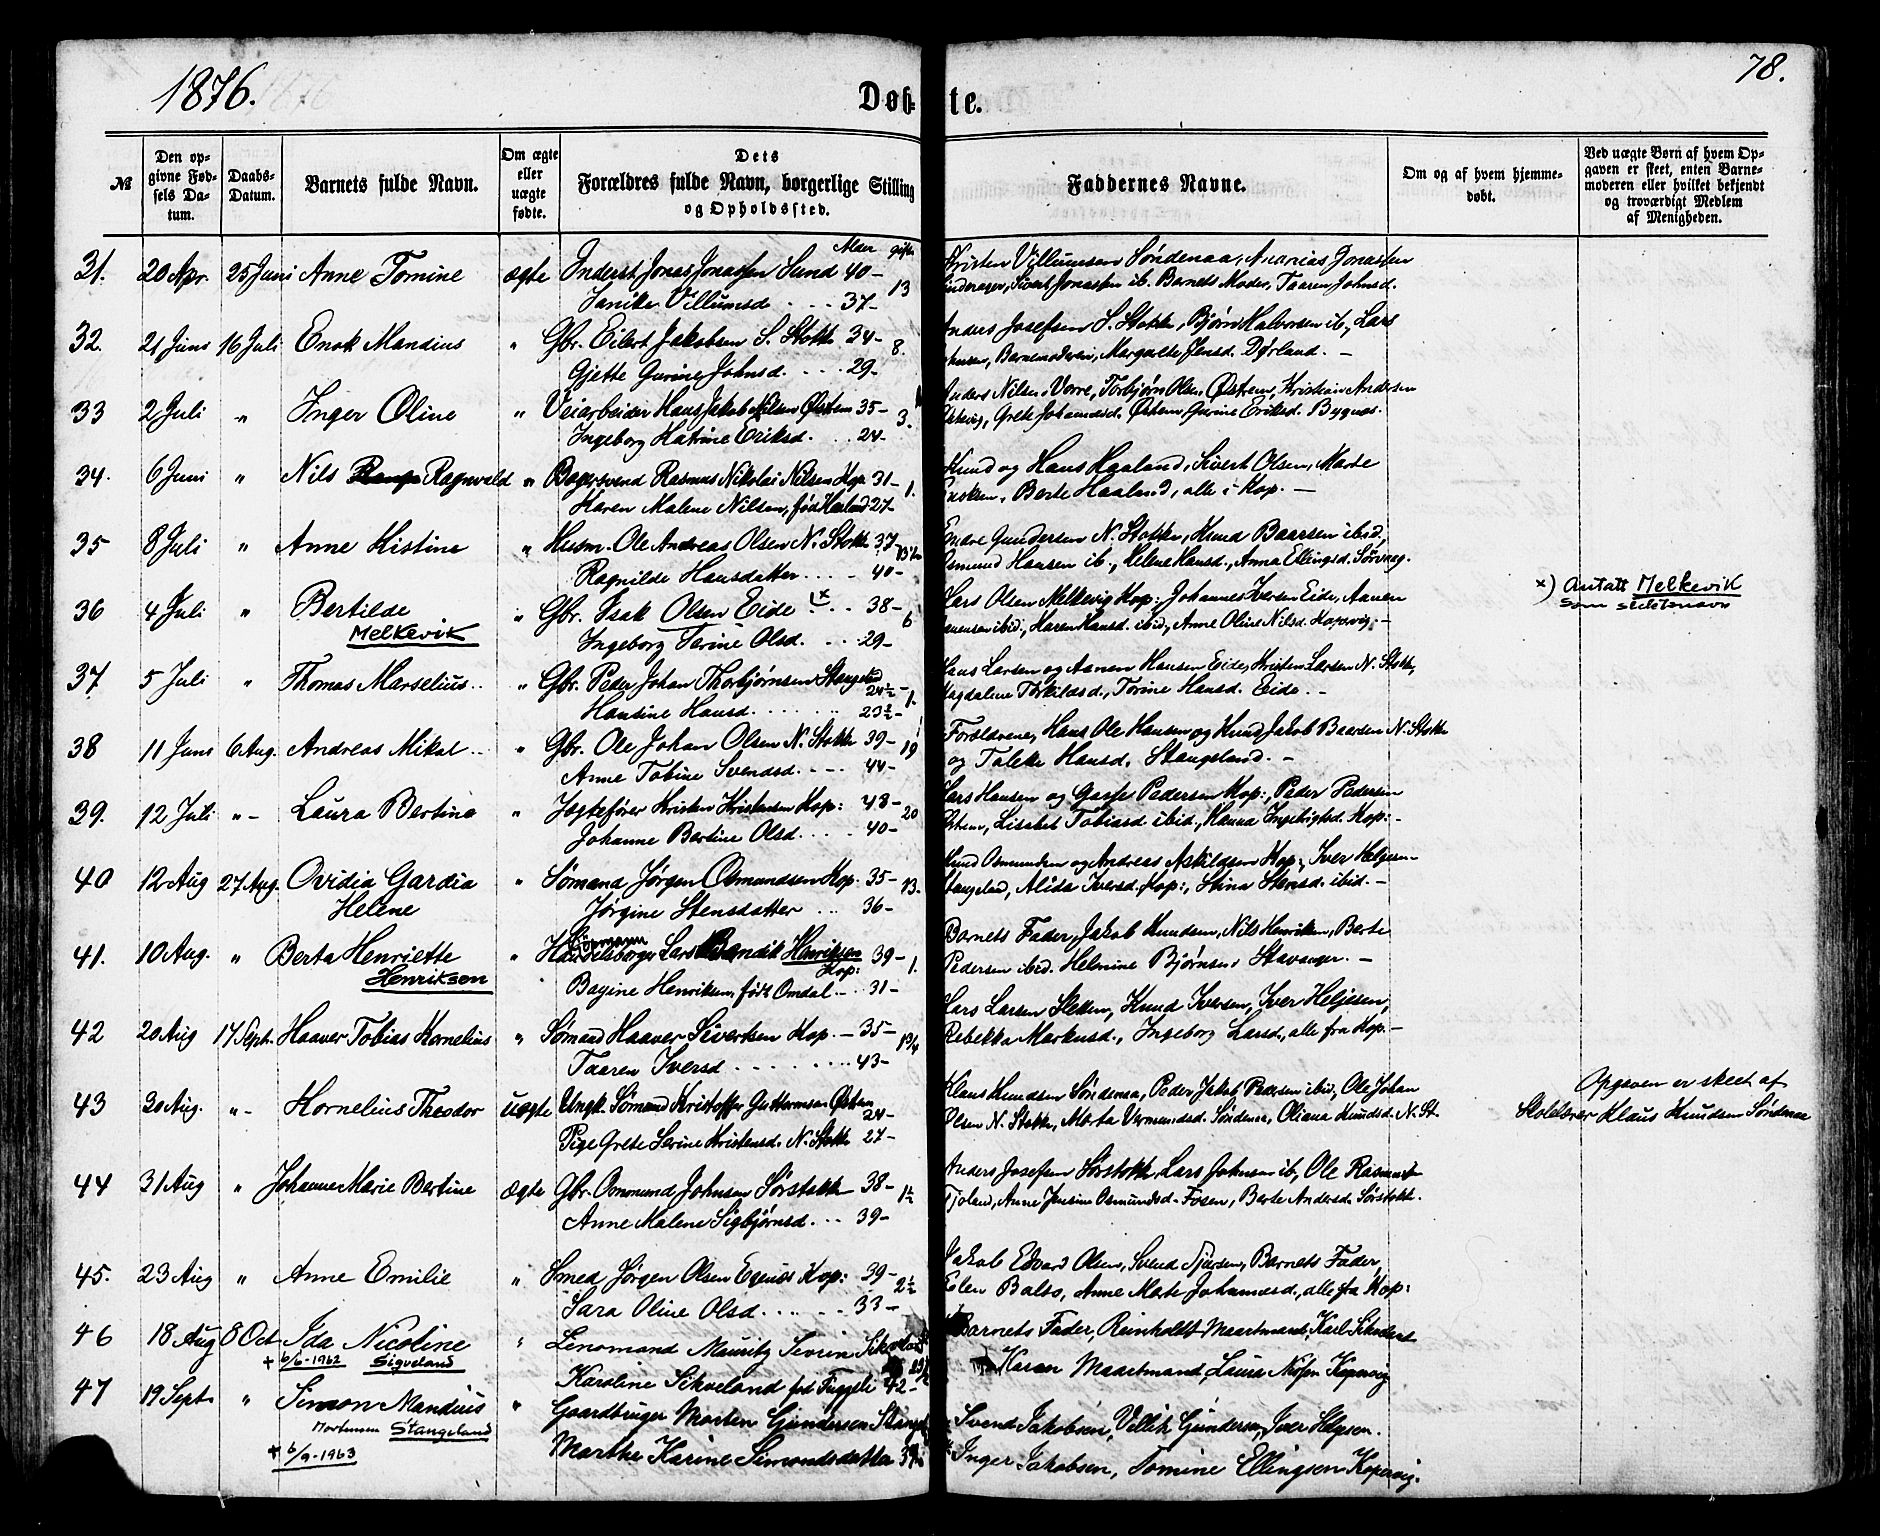 1876.
78.
Døb-
te.
№
Den op-
givne Fød-
sels Da-
tum.
Daabs-
Datum.
Barnets fulde Navn.
Om ægte
eller
uægte
fødte.
Dets
Forældres fulde Navn, borgerlige Stilling
og Opholdssted.
Faddernes Navne.
Om og af hvem hjemme-
døbt.
Ved uægte Børn af hvem Op-
gaven er skeet, enten Barne-
moderen eller hvilket bekjendt
og troværdigt Medlem
af Menigheden.
Alder gifte
31. 20 Apr. 25 Juni Anne Tomine ægte Inderst Jonas Jonassen Sund 40 - 13
Janike Villumsd - - - 37 -
Kristen Villumsen Søndenaa, Jonassen
Sivert Jonassen ib. Barnets Moder, Taaren Johnsd.
32. 21 Juni 16 Juli Enok Mandius " Gbr. Eilert Jakobsen S. Stokke 34 - 8.
Gjette Gurine Johnsd. - - - 29 -
Andres Josefsen S. Stokke, Bjørn Halvorsen ib, Lars
Barnemoderen, Margrete Jensd. Dørland. -
33 2 Juli " Inger Oline " Veiarbeider Hans Jakob Nilsen Østem 35 - 3.
Ingeborg Katrine Eriksd. . . 24 -
Anders Nilsen Vorre, Torbjørn Olsen Østem, Kristian Andersen
Grete Johannesd. Østem, Gurine Eriksd. Bygnes.
34. 6 Juni " Nils Ragnvald " Bagersvend Rasmus Nikolai Nilsen Kop. 31 - 1.
Karen Malene Nilsen, født Haaland 27 -
Knud og Hans Haaland, Sivert Olsen, Marte
Berte Haaland, alle i Kop. -
35 8 Juli " Anne Kistine " Husm. Ole Andreas Olsen N. Stokke 37 -
Ragnilde Hansdatter . . . - 40 -
Endre Gundersen N. Stokke, Knud Baarsen ibid,
Osmund Hansen ib., Helene Hansd., Anna Ellingsd. Sørvaag.
36 4 Juli " Bertilde " Gbr. Isak Olsen Eide x . . 38 - 6
Melkevik
Ingeborg Serine Olsd. . . . 29 -
Lars Olsen Melkevig Kop:, Johannes Iversen Eide, Aanen
Hansen ibid, Karen Hansd. ibid, Anne Oline Nilsd. Kopervig. -
x) Antatt Melkevik
som slektsnavn
37 5 Juli " Thomas Marselius.. " Gbr. Peder Johan Thorbjørnsen Stangeland 24½ - 1.
Hansine Hansd. . . . . . . 23½ -
Hans Larsen og Aanen Hansen Eide, Kristen Larsen N. Stokke,
Magdalene Torkildsd., Torine Hansd. Eide. -
38 11 Juni 6 Aug. Andreas Mikal .. " Gbr. Ole Johan Olsen N. Stokke 39 - 19
Anne Tobine Svendsd. . - - . 44 -
Forældrene, Hans Ole Hansen og Knud Jakob Baarsen N. Stokke
og Taleke Hansd. Stangeland. -
39. 12 Juli " - Laura Bertine " Jægtefører Kristen Kristensen Kop: 48 - 20
Johanne Bertine Olsd. . . . . 40 -
Lars Hansen og Pedersen Kop:, Peder Pedersen
Østem, Lisabet Tobiasd ibid., Hanna Kop: -
40 12 Aug 27 Aug. Ovidia Gardia " Sømand Jørgen Osmundsen Kop. 35 - 13.
Helene
Jørgine Stensdatter . . . 36 -
Knud Osmundsen og Andreas Askildsen Kop:, Iver Helgesen
Stangeland, Alida Iversd. Kop:, Stina Stensd. ibid. -
41. 10 Aug. " Berta Henriette " Handelsborger Lars Bendik Henriksen 39 - 1.
Kjøpmann
Kop:
Henriksen
Bagine Henriksen, født Omdal - . 31 -
Barnets Fader, Jakob Knudsen, Nils Henriksen, Berte
Pedersen ibid. Helmine Bjørnsen Stavanger. -
42 20 Aug 17 Sept. Haaver Tobias Kornelius " Sømand Haaver Sivertsen Kop. - 35 -
Taaren Iversd . . . . . . . . 43 -
Lars Larsen Sletten, Knud Iversen, Iver Helgesen,
Rebekka Markusd., Ingeborg Larsd., alle fra Kop. -
43 30 Aug. " - Kornelius Theodor uægte Ungk. Sømand Kristoffer Guttormsen Østem
24 -
Pige Grete Serine Kristensd. N. Stokke 27 -
Klaus Knudsen Søndenaa, Peder Jakob Pedersen ibid, Ole Johan
Olsen N. Stokke, Marta Vermundsd. Søndenaa, Oliana Knudsd. N. St.
Opgaven er skeet af
Skolelærer Klaus Knudsen Søndenaa
44 31 Aug " Johanne Marie Bertine ægte Gbr. Osmund Johnsen Sørstokke 38 - 1½
Anne Malene Sigbjørnsd. . . 39 -
Anders Josefsen Sørstokke, Lars Johnsen ib, Ole
Anne Jensine Osmundsd. Fosen, Berte Andersd. Sørstokke.
45. 23 Aug " Anne Emilie " Smed Jørgen Olsen Kop: 39 - 2½
Sara Oline Olsd. . . . . . 33 -
Jakob Edvard Olsen, Svend Barnets Fader,
Elen Anne Marte Johannesd., alle fra Kop:
46 18 Aug 8 Oct. Ida Nicoline " Lensmand Mauritz Severin
+ 6/6-1962 Sigveland
Karoline Sikveland fød 42 -
Barnets Fader, Reinholdt Maartmand, Karl
Karen Maartmand, Laura Kopervig
47 19 Sept. " Simon Mandius " Gaardbruger Morten Gundersen
Mortensen Stangeland
+ 6/9-1963
Marthe Karine Simondsdatter
Svend Jakobsen, Villik Gundersen, Iver Helgesen.
Inger Jakobsen, Tomine Ellingsen Kopervig.